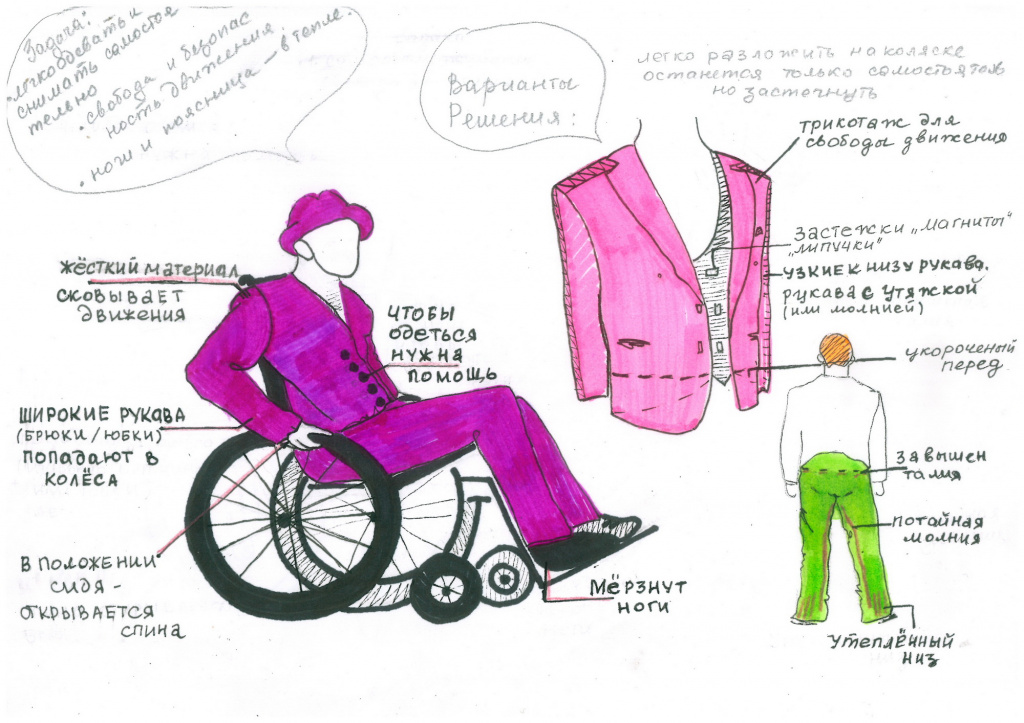 Задача:
•легкоодевать и
снимать самостоя
тельно
•свобода и безопас
ность движения
•ноги и поясница – в тепле.
Варианты
Решения:
легко разложить на коляске
останется только самостоятель
но застегнуть
трикотаж для
свободы движения
застежки „магниты"
„липучки"
узкие к низу рукава.
рукава с утяжской
(или молнией)
укороченый
перед
завышен
талия
потайная
молния
утеплённый
низ
жёсткий материал
сковывает
движения
чтобы
одеться
нужна
помощь
широкие рукава
(брюки/юбки)
попадают в
колёса
в положении
сидя -
открывается
спина
мёрзнут
ноги